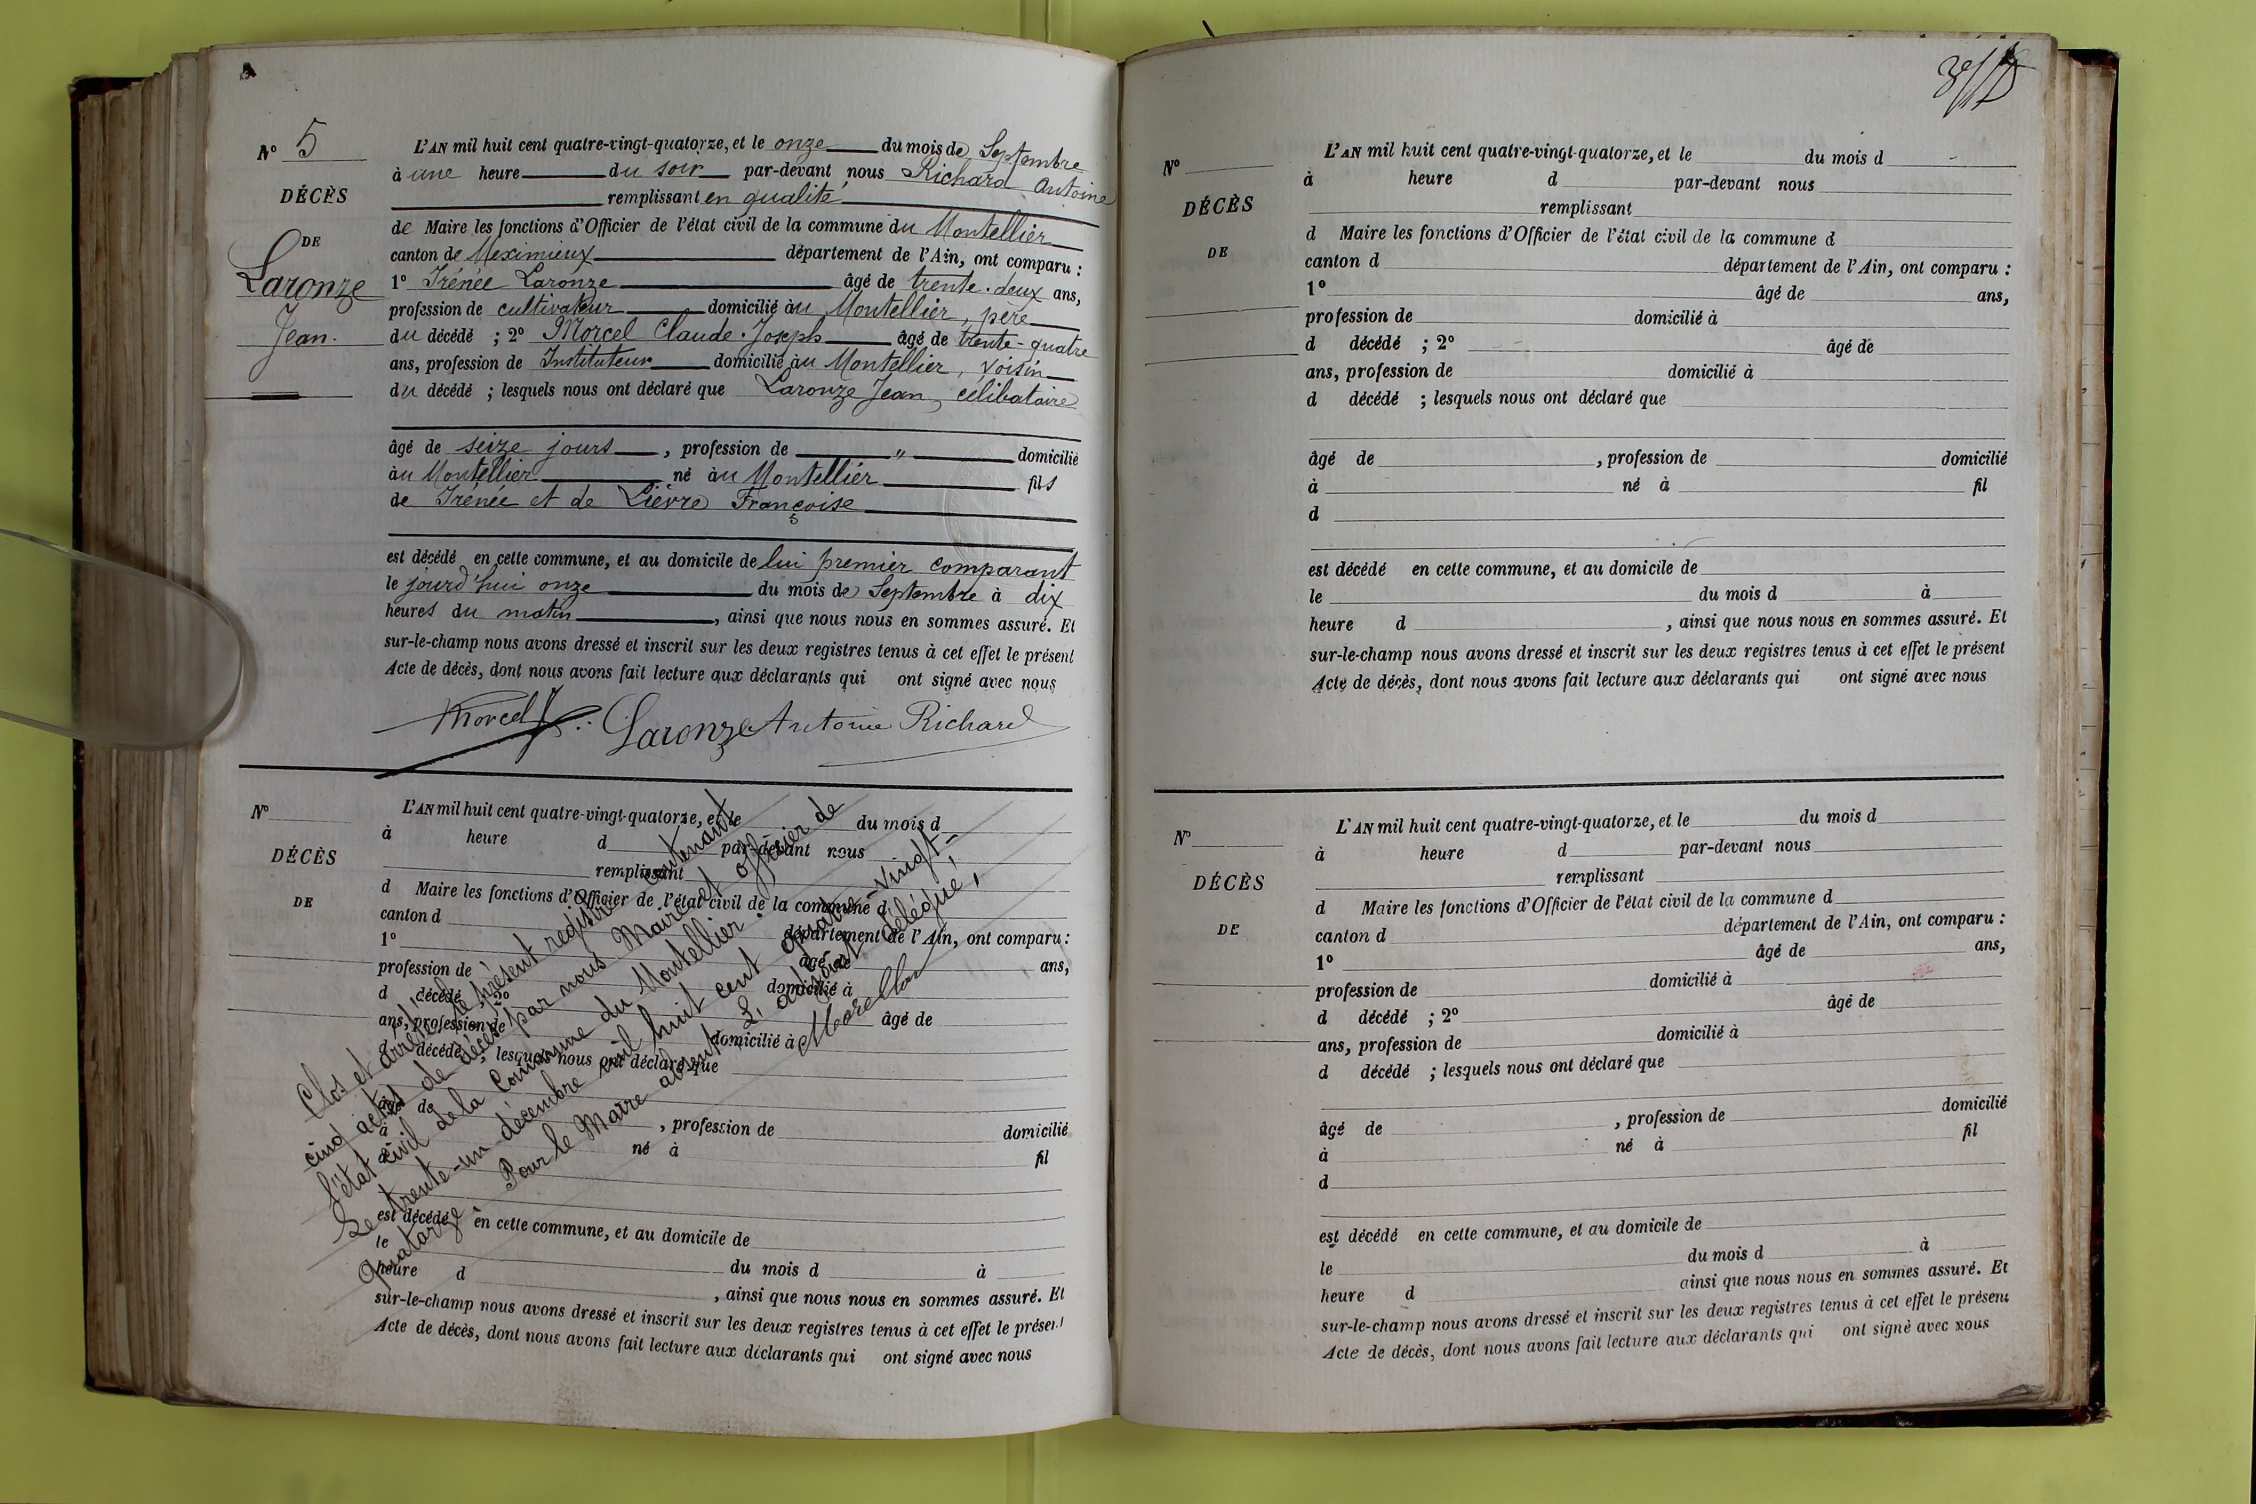 N° 5
DÉCÈS
DE
Laronze
Jean.
L'AN mil huit cent quatre-vingt-quatorze, et le onze du mois de Septembre
à une heure du soir par-devant nous Richard Antoine
remplissant en qualité
de Maire les fonctions d'Officier de l'état civil de la commune du Montellier
canton de Meximieux département de l'Ain, ont comparu :
1° Irénée Laronze âgé de trente-deux ans,
profession de cultivateur domicilié àu Montellier, père
du décédé ; 2° Morcel Claude-Joseph âgé de trente-quatre
ans, profession de Instituteur domicilié àu Montellier, voisin
du décédé ; lesquels nous ont déclaré que Laronze Jean, célibataire
âgé de seize jours, profession de " domicilié
àu Montellier né àu Montellier fils
de Irénée et de Lièvre Françoise
est décédé en cette commune, et au domicile de lui premier comparant
le jourd'hui onze du mois de Septembre à dix
heures du matin, ainsi que nous nous en sommes assuré. Et
sur-le-champ nous avons dressé et inscrit sur les deux registres tenus à cet effet le présent
Acte de décès, dont nous avons fait lecture aux déclarants qui ont signé avec nous
Morcel J. Laronze Antoine Richard
N°
DÉCÈS
DE
L'AN mil huit cent quatre-vingt-quatorze, et le du mois d
à heure d par-devant nous
remplissant
d Maire les fonctions d'Officier de l'état civil de la commune d
canton d département de l'Ain, ont comparu :
1° âgé de ans,
profession de domicilié à
d décédé ; 2° âgé de
ans, profession de domicilié à
d décédé ; lesquels nous ont déclaré que
âgé de , profession de domicilié
à né à fil
d
est décédé en cette commune, et au domicile de
le du mois d à
heure d , ainsi que nous nous en sommes assuré. Et
sur-le-champ nous avons dressé et inscrit sur les deux registres tenus à cet effet le présent
Acte de décès, dont nous avons fait lecture aux déclarants qui ont signé avec nous
Clos et arrêté le présent registre contenant
cinq actes de décès par nous Maire et officier de
l'état civil de la Commune du Montellier.
Le trente-un décembre mil huit cent quatre-vingt-
quatorze. Pour le Maire absent, L'adjoint délégué,
N°
DÉCÈS
DE
L'AN mil huit cent quatre-vingt-quatorze, et le du mois d
à heure d par-devant nous
remplissant
d Maire les fonctions d'Officier de l'état civil de la commune d
canton d département de l'Ain, ont comparu :
1° âgé de ans,
profession de domicilié à
d décédé ; 2° âgé de
ans, profession de domicilié à
d décédé ; lesquels nous ont déclaré que
âgé de , profession de domicilié
à né à fil
d
est décédé en cette commune, et au domicile de
le du mois d à
heure d , ainsi que nous nous en sommes assuré. Et
sur-le-champ nous avons dressé et inscrit sur les deux registres tenus à cet effet le présent
Acte de décès, dont nous avons fait lecture aux déclarants qui ont signé avec nous
N°
DÉCÈS
DE
L'AN mil huit cent quatre-vingt-quatorze, et le du mois d
à heure d par-devant nous
remplissant
d Maire les fonctions d'Officier de l'état civil de la commune d
canton d département de l'Ain, ont comparu :
1° âgé de ans,
profession de domicilié à
d décédé ; 2° âgé de
ans, profession de domicilié à
d décédé ; lesquels nous ont déclaré que
âgé de , profession de domicilié
à né à fil
d
est décédé en cette commune, et au domicile de
le du mois d à
heure d ainsi que nous nous en sommes assuré. Et
sur-le-champ nous avons dressé et inscrit sur les deux registres tenus à cet effet le présent
Acte de décès, dont nous avons fait lecture aux déclarants qui ont signé avec nous